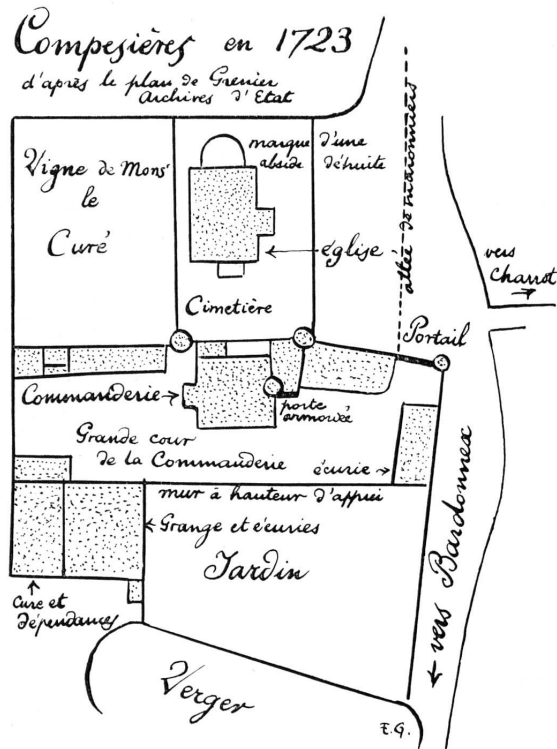 Compesières en 1723
d'après le plan de Grenier
Archives d'Etat
Vigne de Monsr
le
Curé
marque d'une
abside détruite
église
allée de maronniers
vers
Charrot
Cimetière
Portail
Commanderie
porte
armoriée
Grande cour
de la Commanderie
écurie
mur à hauteur d'appui
Grange et écuries
Jardin
Cure et
dépendances
vers Bardonnex
Verger
E.G.